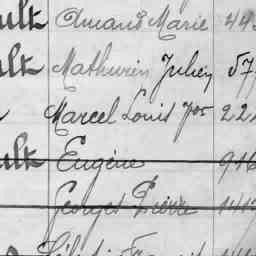 ult Amand Marie 44
ult Mathurin Julien 57
Marcel Louis Jos 22
ult Eugène 916
Georges Pierre 141